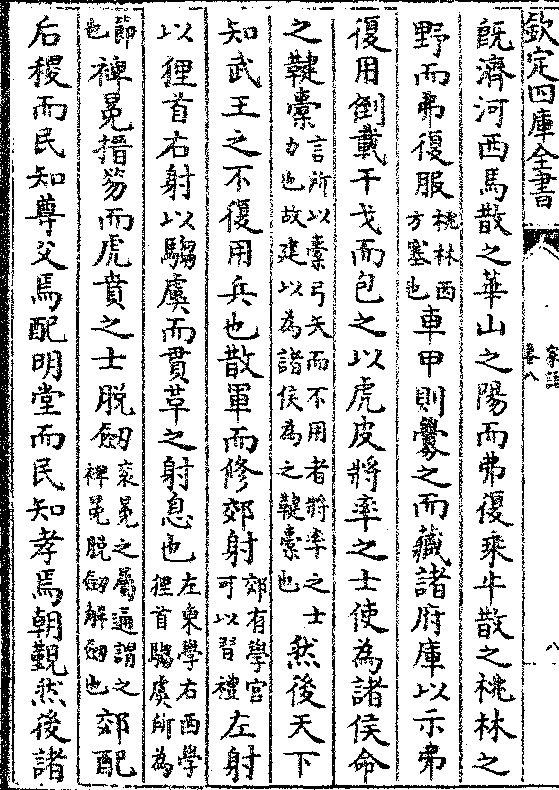 欽定四庫全書
家語
卷八
八
既濟河西馬散之華山之陽而弗復乘牛散之桃林之
野而弗復服桃林西方塞也車甲則釁之而藏諸府庫以示弗
復用倒載干戈而包之以虎皮將率之士使為諸侯命
之鞬櫜言所以櫜弓矢而不用者將率之士力也故建以為諸侯為之鞬櫜也然後天下
知武王之不復用兵也散軍而修郊射郊有學宮可以習禮左射
以狸首右射以騶虞而貫革之射息也左東學右西學狸首騶虞所為
節也裨冕搢笏而虎賁之士脫劒衮冕之屬通謂之裨冕脫劒解劒也郊配
后稷而民知尊父焉配明堂而民知孝焉朝覲然後諸